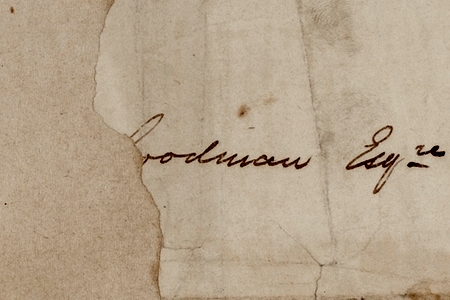 oodman Esq^re